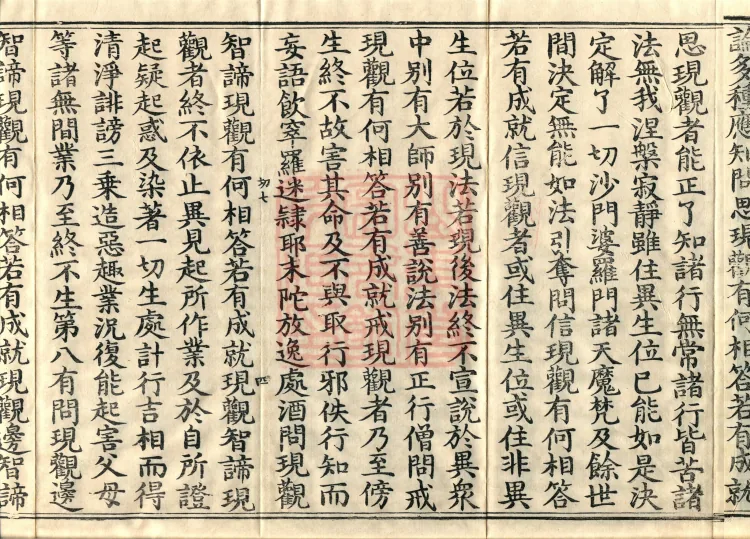 論多種應知問思現觀有何相答若有成就
思現觀者能正了知諸行無常諸行皆苦諸
法無我涅槃寂靜雖住異生位已能如是決
定解了一切沙門婆羅門諸天魔梵及餘世
間決定無能如法引奪問信現觀有何相答
若有成就信現觀者或住異生位或住非異
生位若於現法若現後法終不宣說於異衆
中別有大師別有善說法別有正行僧問戒
現觀有何相答若有成就戒現觀者乃至傍
生終不故害其命及不與取行邪佚行知而
妄語飲窣羅迷隸耶末陀放逸處酒問現觀
初七 四
智諦現觀有何相答若有成就現觀智諦現
觀者終不依止異見起所作業及於自所證
起疑起惑及染著一切生處計行吉相而得
清淨誹謗三乘造惡趣業況復能起害父母
等諸無間業乃至終不生第八有問現觀邊
智諦現觀有何相答若有成就現觀邊智諦